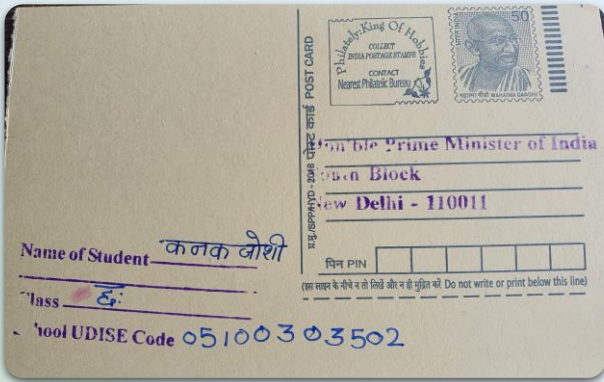 Philately: King Of Hobbies
COLLECT
INDIA POSTAGE STAMPS
CONTACT
Nearest Philatelic Bureau
भारत INDIA
50
महात्मा गाँधी MAHATMA GANDHI
पोस्ट कार्ड POST CARD
Hon'ble Prime Minister of India
South Block
New Delhi - 110011
पिन PIN
(इस लाइन के नीचे न तो लिखें और न ही मुद्रित करें Do not write or print below this line)
Name of Student कनक जोशी
Class छः
School UDISE Code 05100303502